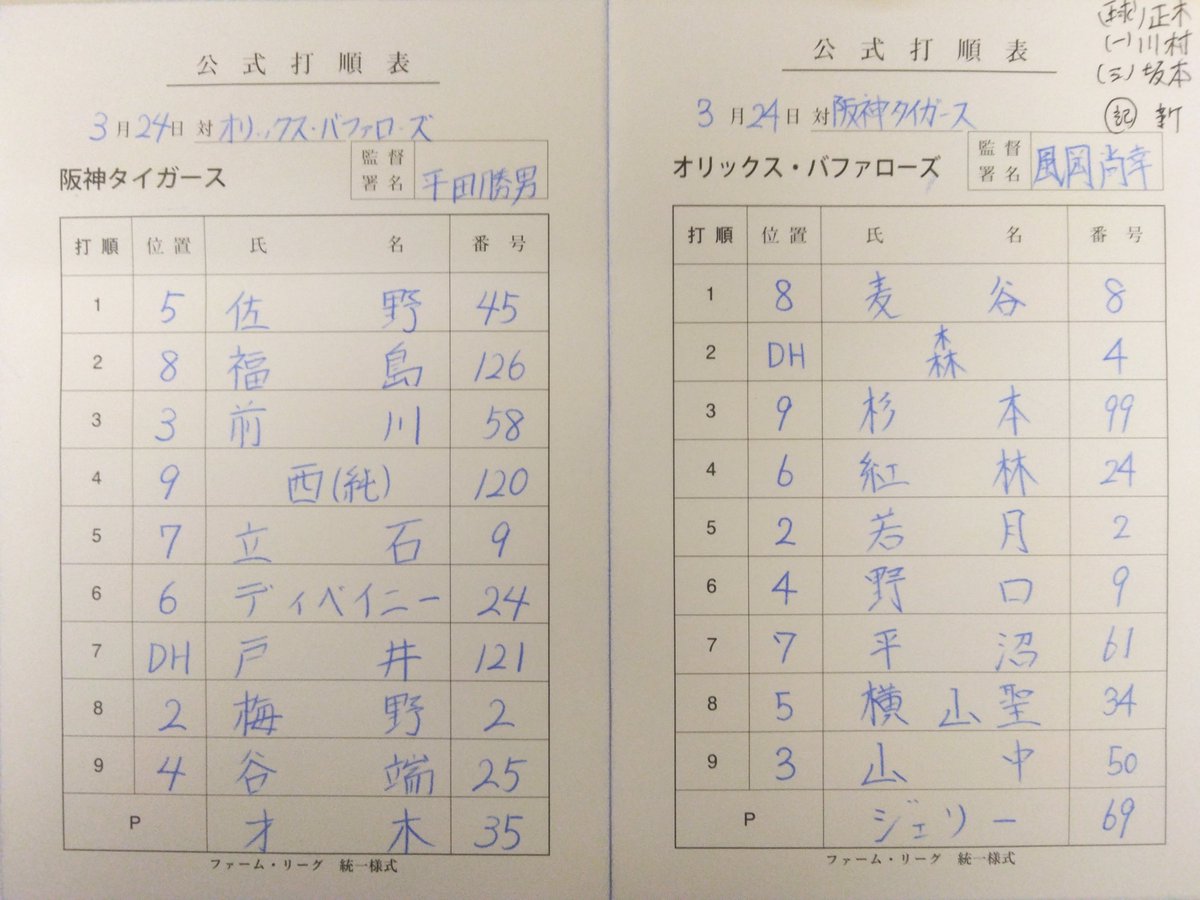 公式打順表
3月24日 対 オリックス・バファローズ
阪神タイガース 監督署名 平田勝男
打順 位置 氏名 番号
1 5 佐野 45
2 8 福島 126
3 3 前川 58
4 9 西(純) 120
5 7 立石 9
6 6 ディベイニー 24
7 DH 戸井 121
8 2 梅野 2
9 4 谷端 25
P 才木 35
ファーム・リーグ 統一様式
(球)正木
(一)川村
(三)坂本
記 新
公式打順表
3月24日 対 阪神タイガース
オリックス・バファローズ 監督署名 風岡尚幸
打順 位置 氏名 番号
1 8 麦谷 8
2 DH 森 4
3 9 杉本 99
4 6 紅林 24
5 2 若月 2
6 4 野口 9
7 7 平沼 61
8 5 横山聖 34
9 3 山中 50
P ジェリー 69
ファーム・リーグ 統一様式